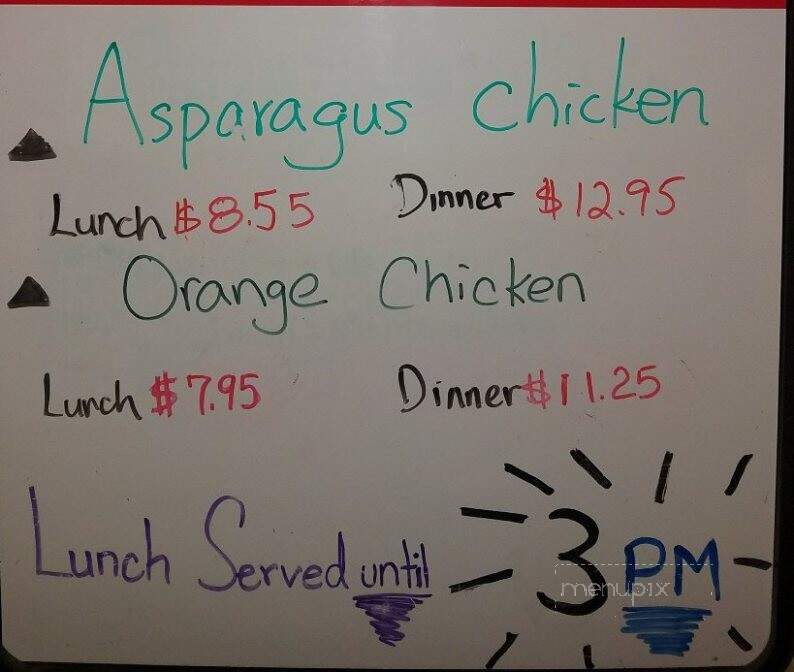 Asparagus Chicken
Lunch $8.55 Dinner $12.95
Orange Chicken
Lunch $7.95 Dinner $11.25
Lunch Served until 3 PM
menupix